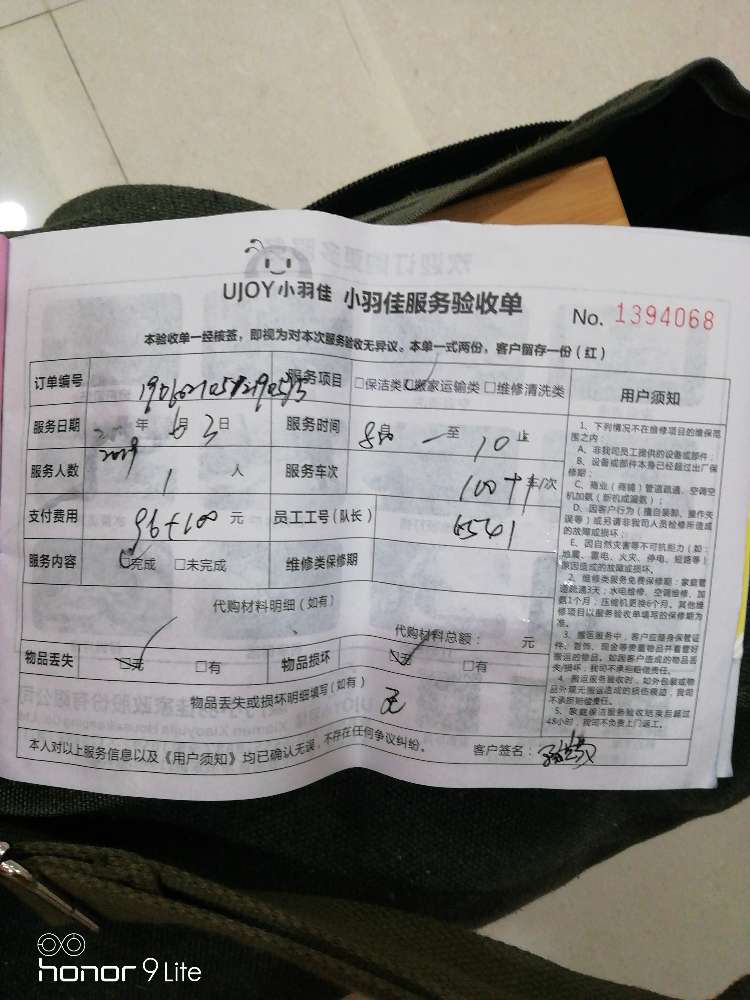 UJOY小羽佳 小羽佳服务验收单
No. 1394068
本验收单一经核签，即视为对本次服务验收无异议。本单一式两份，客户留存一份（红）
订单编号 服务项目 □保洁类 □搬家运输类 □维修清洗类
服务日期 2019 年 6 月 3 日 服务时间 8 至 10 止
服务人数 1 人 服务车次 车/次
支付费用 96+100 元 员工工号(队长) 6541
服务内容 □完成 □未完成 维修类保修期
代购材料明细 (如有)
代购材料总额： 元
物品丢失 □无 □有 物品损坏 □无 □有
物品丢失或损坏明细填写(如有) 无
本人对以上服务信息以及《用户须知》均已确认无误，不存在任何争议纠纷。 客户签名：
用户须知
1、下列情况不在维修项目的维保范
围之内：
A、非我司员工提供的设备或部件；
B、设备或部件本身已经超过出厂保
修期；
C、商业（商铺）管道疏通、空调空
机加氨（新机或漏氨）；
D、因客户行为（擅自装卸、操作失
误等）或另请非我司人员检修所造成
的故障或损坏；
E、因自然灾害等不可抗拒力（如：
地震、雷电、火灾、停电、短路等）
原因造成的故障或损坏。
2、维修类服务免费保修期：家庭管
道疏通3天；水电维修、空调维修、加
氨1个月；压缩机更换6个月。其他维
修项目以服务验收单填写的保修期为
准。
3、搬运服务中，客户应随身保管证
件、首饰、现金等贵重物品并看管好
搬运的物品。如因客户造成的物品丢
失/损坏，我司不承担赔偿责任。
4、搬运服务验收时，如外包装或物
品外观无搬运造成的损伤痕迹，我司
不承担赔偿责任。
5、家庭保洁服务验收结束后超过
48小时，我司不负责上门返工。
honor 9 Lite